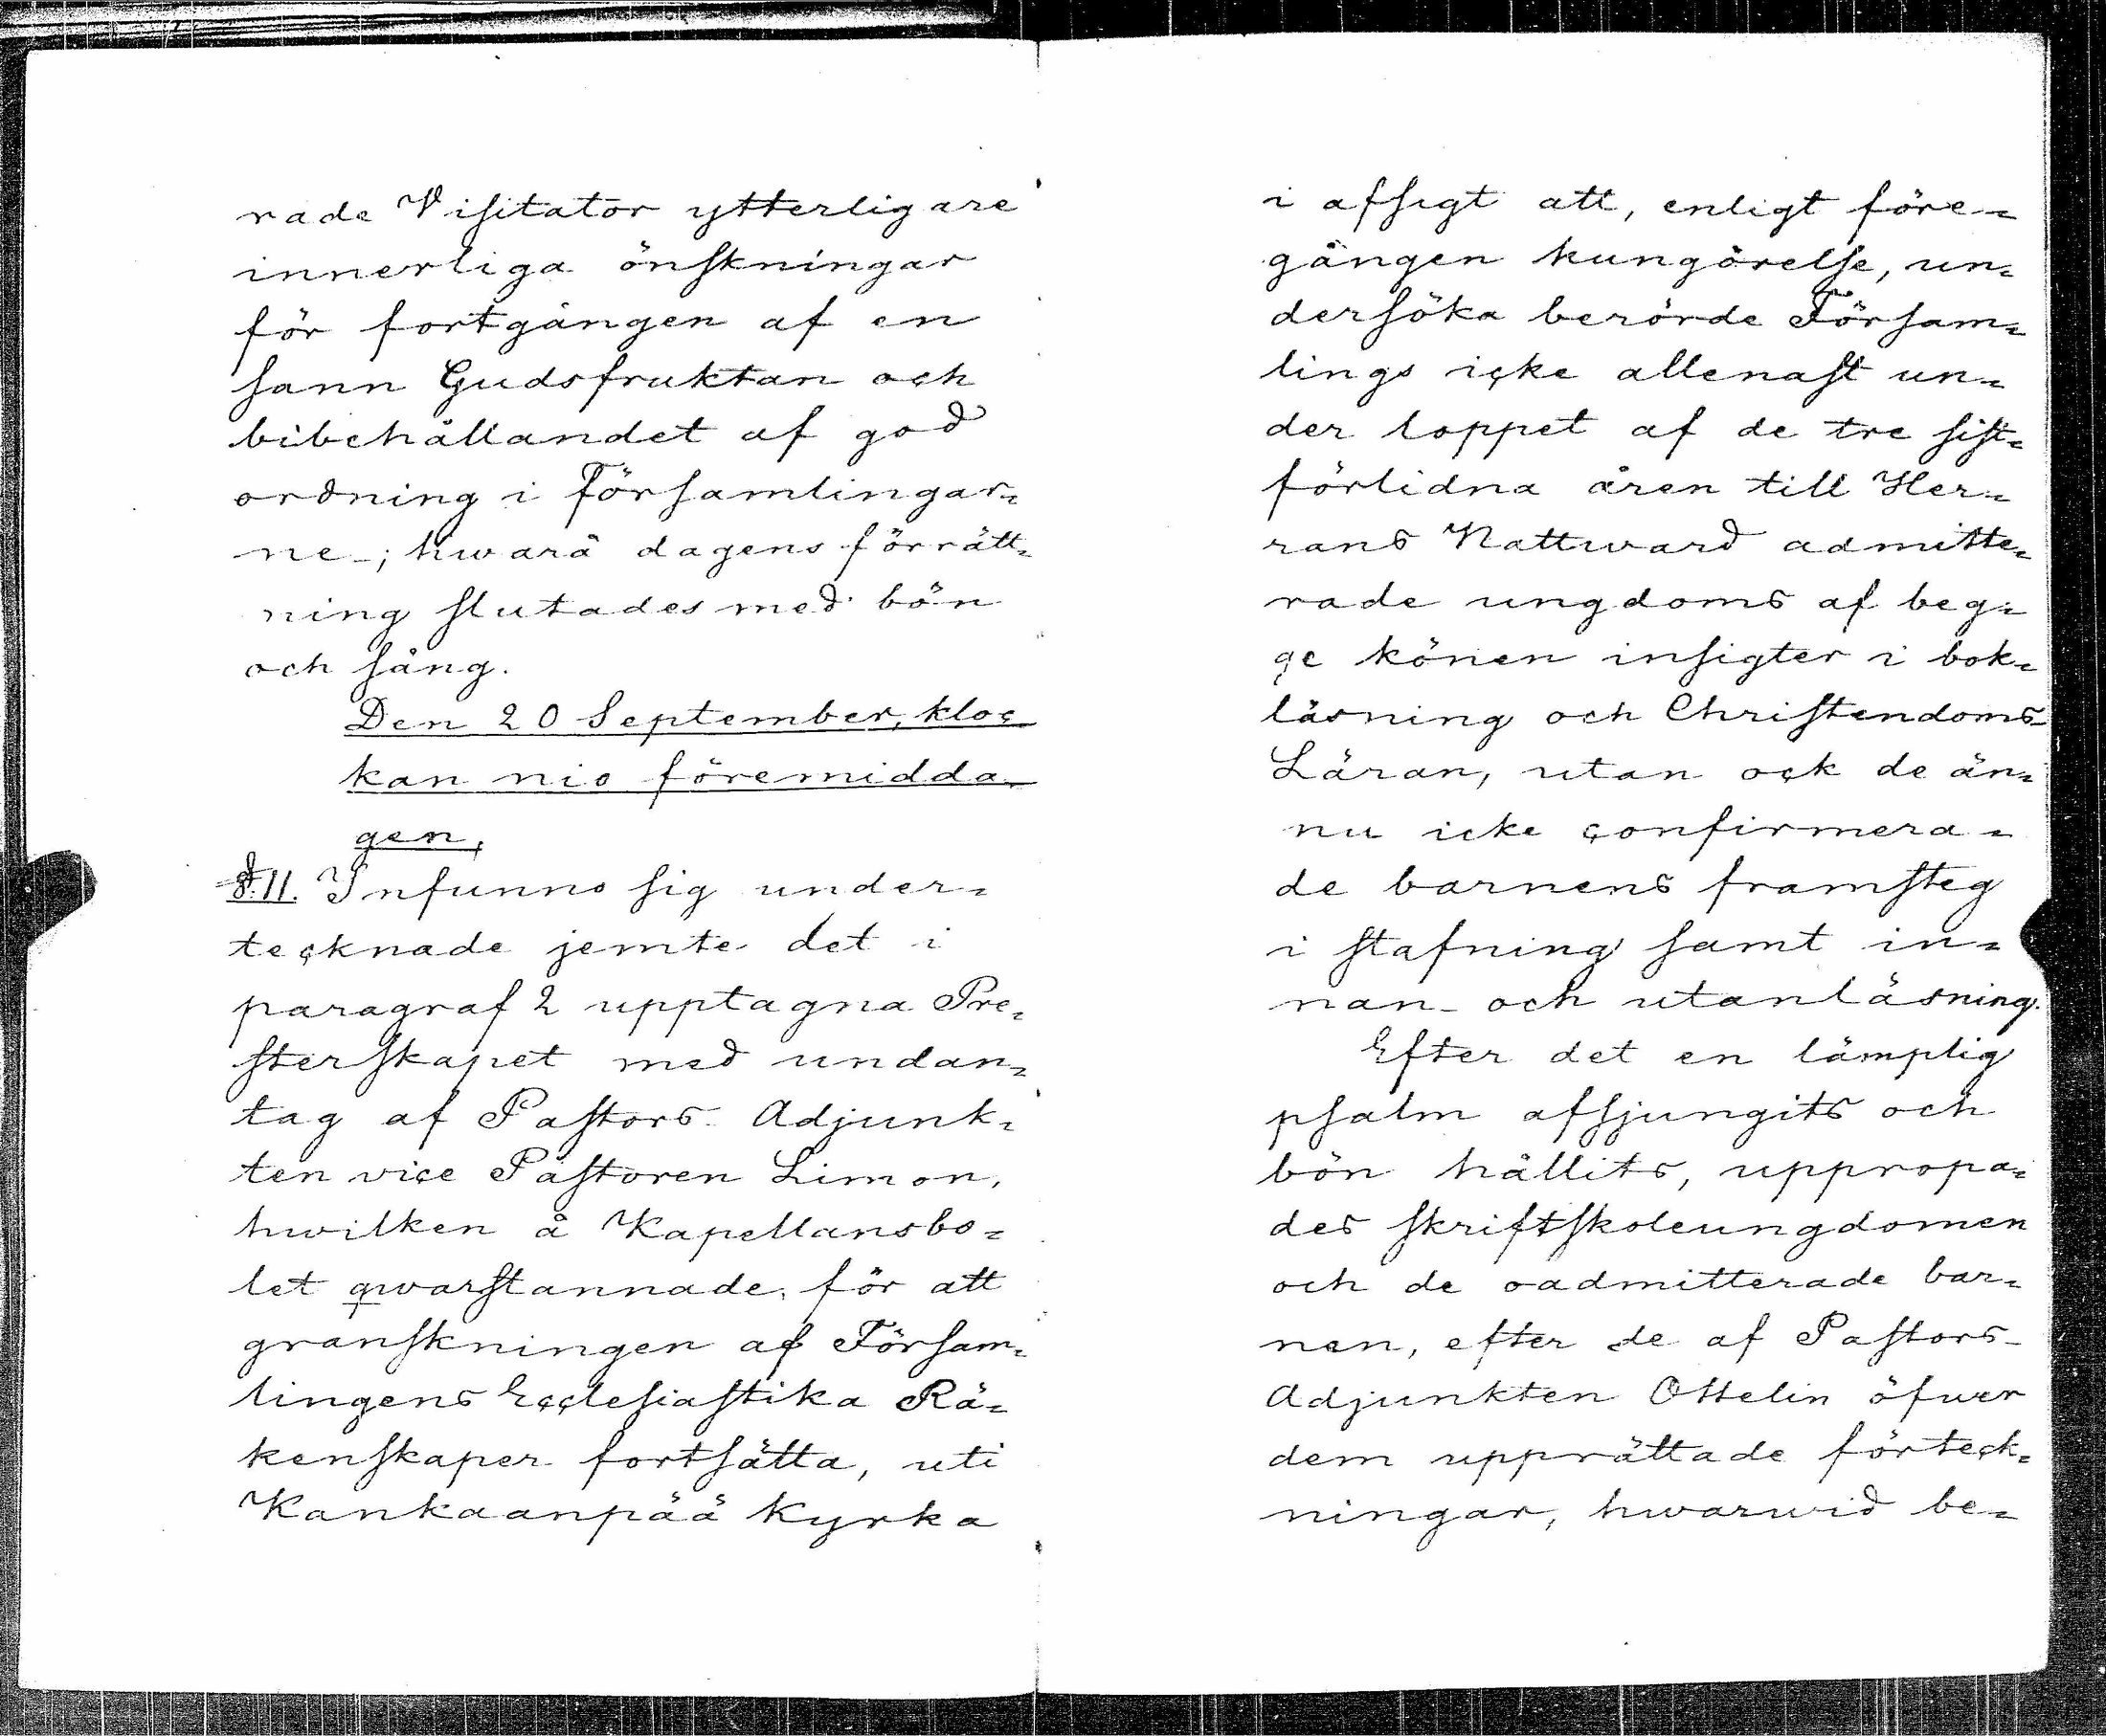 rade Visitator ytterligare
innerliga önskningar
för fortgången af en
sann Gudsfruktan och
bibehållandet af god
ordning i Församlingar=
ne; hwarå dagens förrätt=
ning slutades med bön
och sång.
Den 20 September, kloc
kan nio föremidda
gen,
§.11. Infunno sig under=
tecknade jemte det i
paragraf 2 upptagna Pre=
sterskapet med undan=
tag af Pastors Adjunk=
ten vice Pastoren Limon,
hwilken å Kapellansbo=
let qwarstannade, för att
granskningen af Försam=
lingens Ecclesiastika Rä=
kenskaper fortsätta, uti
Kankaanpää Kyrka
i afsigt att, enligt före=
gången kungörelse, un=
dersöka berörde Försam=
lings icke allenast un=
der loppet af de tre sist=
förlidna åren till Her=
rans Nattward admitte=
rade ungdoms af beg=
ge könen insigter i bok=
läsning och Christendoms-
Läran, utan ock de än=
nu icke confirmera=
de barnens framsteg
i stafning samt in=
nan- och utanläsning.
Efter det en lämplig
psalm afsjungits och
bön hållits, uppropa=
des skriftskoleungdomen
och de oadmitterade bar=
nen, efter de af Pastors-
Adjunkten Ottelin öfwer
dem upprättade förteck=
ningar, hwarwid be=